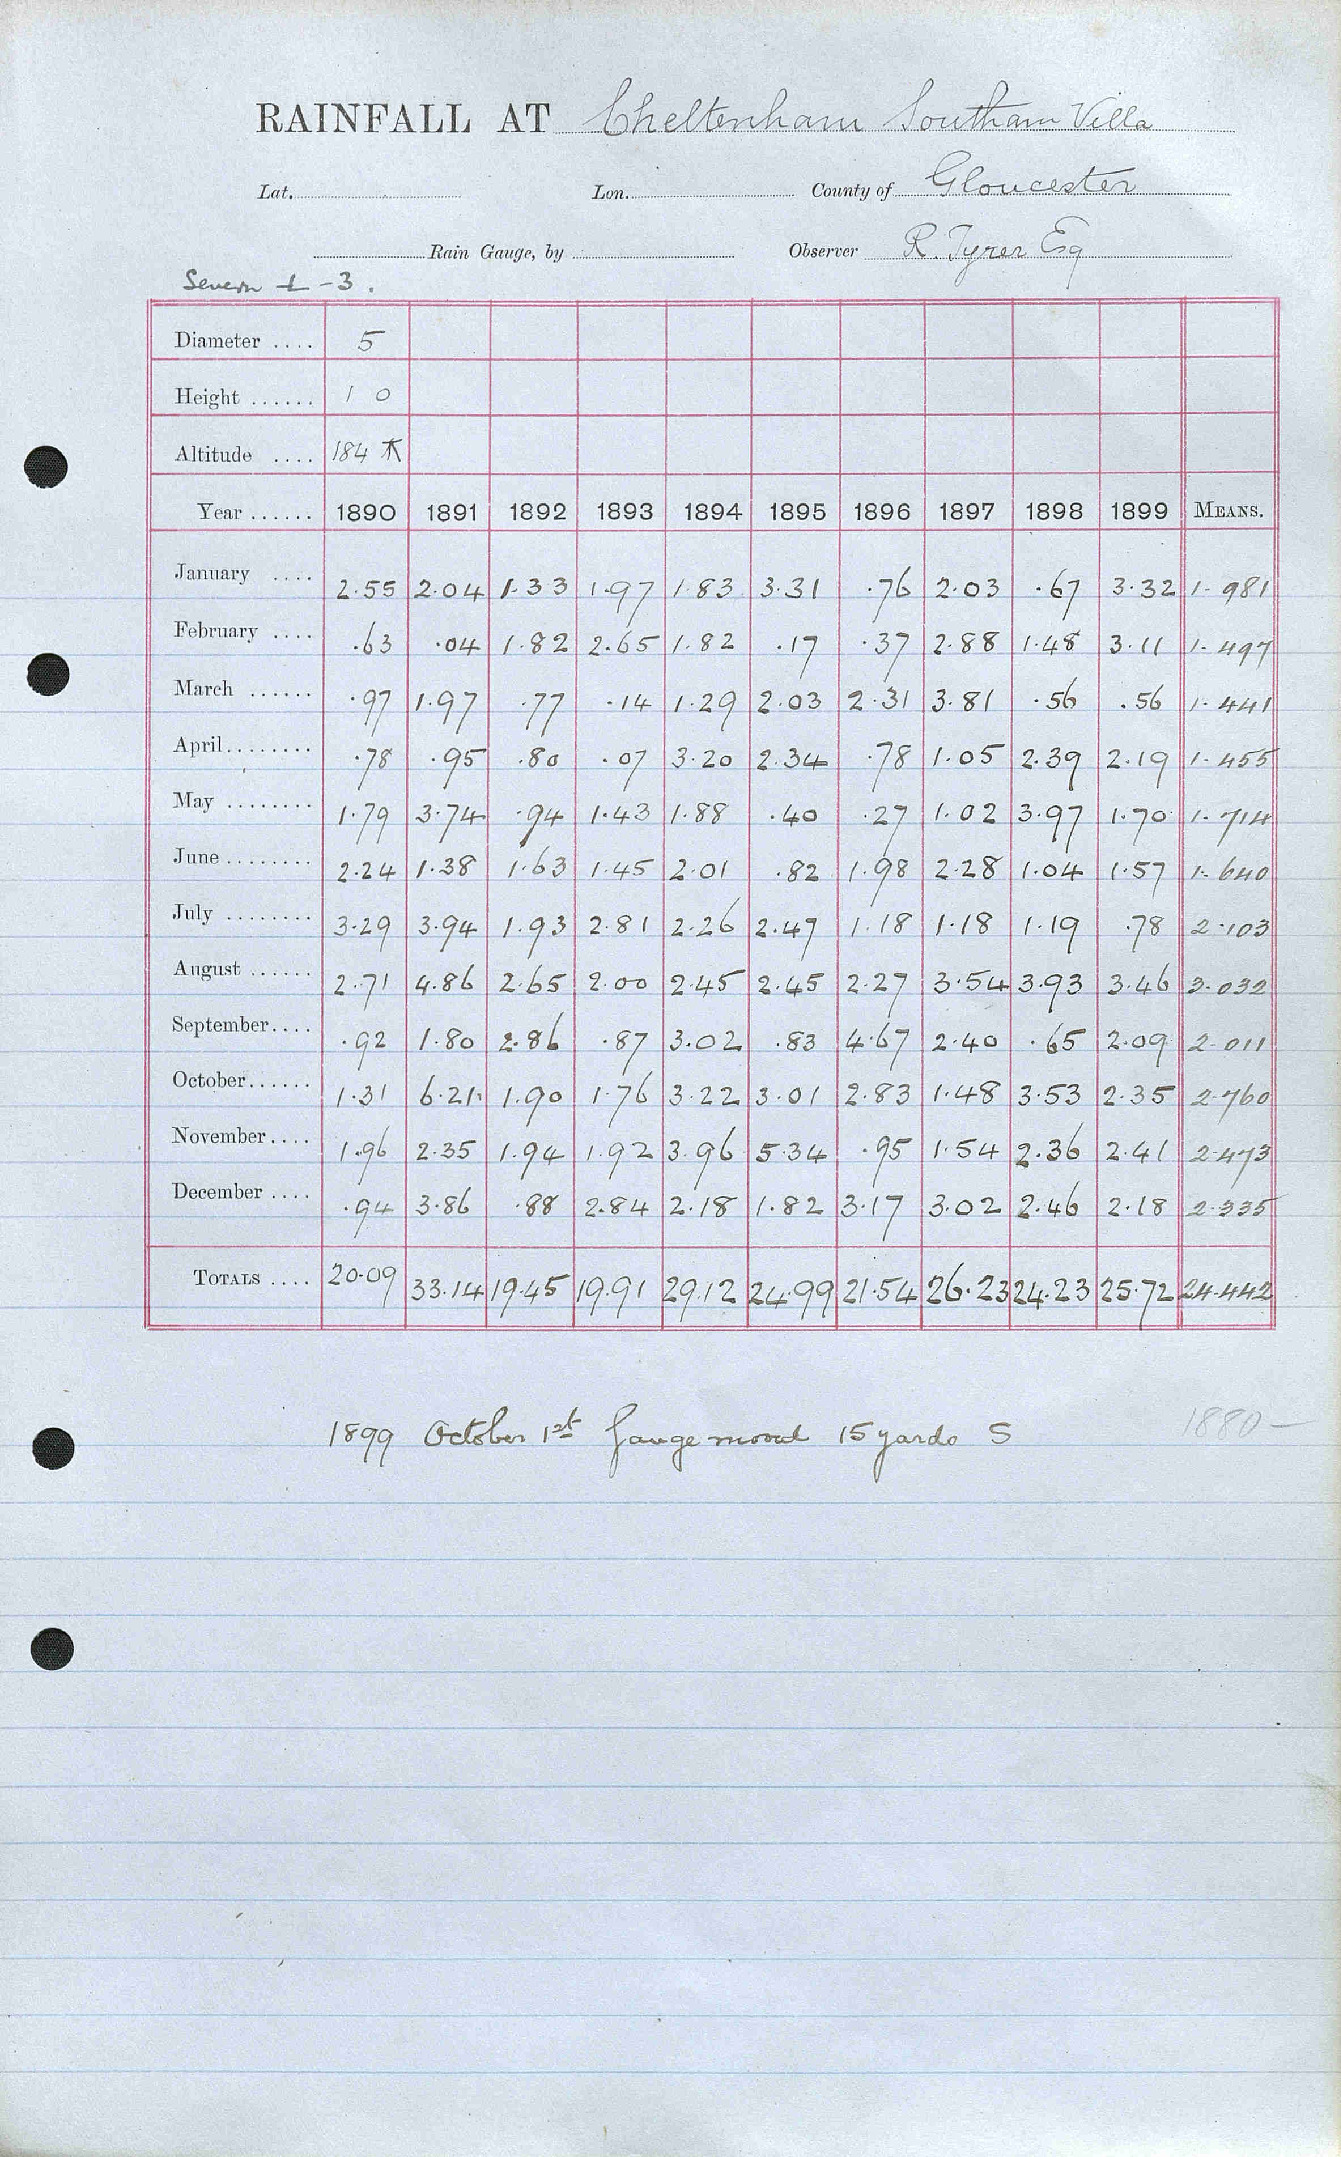 RAINFALL AT Cheltenham Southam Villa
Lat. Lon. County of Gloucester
Rain Gauge, by Observer R. Tyrer Esq
Severn 1-3.
Diameter .... 5
Height ...... 1 0
Altitude .... 184
Year ...... 1890 1891 1892 1893 1894 1895 1896 1897 1898 1899 MEANS.
January .... 2.55 2.04 1.33 1.97 1.83 3.31 .76 2.03 .67 3.32 1.981
February .... .63 .04 1.82 2.65 1.82 .17 .37 2.88 1.48 3.11 1.497
March ...... .97 1.97 .77 .14 1.29 2.03 2.31 3.81 .56 .56 1.441
April ........ .78 .95 .80 .07 3.20 2.34 .78 1.05 2.39 2.19 1.455
May ........ 1.79 3.74 .94 1.43 1.88 .40 .27 1.02 3.97 1.70 1.714
June ........ 2.24 1.38 1.63 1.45 2.01 .82 1.98 2.28 1.04 1.57 1.640
July ........ 3.29 3.94 1.93 2.81 2.26 2.47 1.18 1.18 1.19 .78 2.103
August ...... 2.71 4.86 2.65 2.00 2.45 2.45 2.27 3.54 3.93 3.46 3.032
September .... .92 1.80 2.86 .87 3.02 .83 4.67 2.40 .65 2.09 2.011
October ...... 1.31 6.21 1.90 1.76 3.22 3.01 2.83 1.48 3.53 2.35 2.760
November .... 1.96 2.35 1.94 1.92 3.96 5.34 .95 1.54 2.36 2.41 2.473
December .... .94 3.86 .88 2.84 2.18 1.82 3.17 3.02 2.46 2.18 2.335
TOTALS .... 20.09 33.14 19.45 19.91 29.12 24.99 21.54 26.23 24.23 25.72 24.442
1899 October 1st Gauge moved 15 yards S
1880-